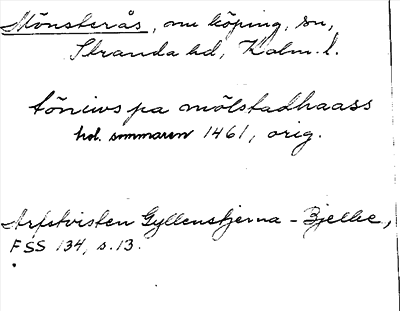 Mönsterås, nu köping, sn,
Stranda hd, Kalm. l.
töniws pa mölstadhaass
hal. sommaren 1461, orig.
Arfstvisten Gyllenstjerna - Bjelke,
FSS 134, s. 13.